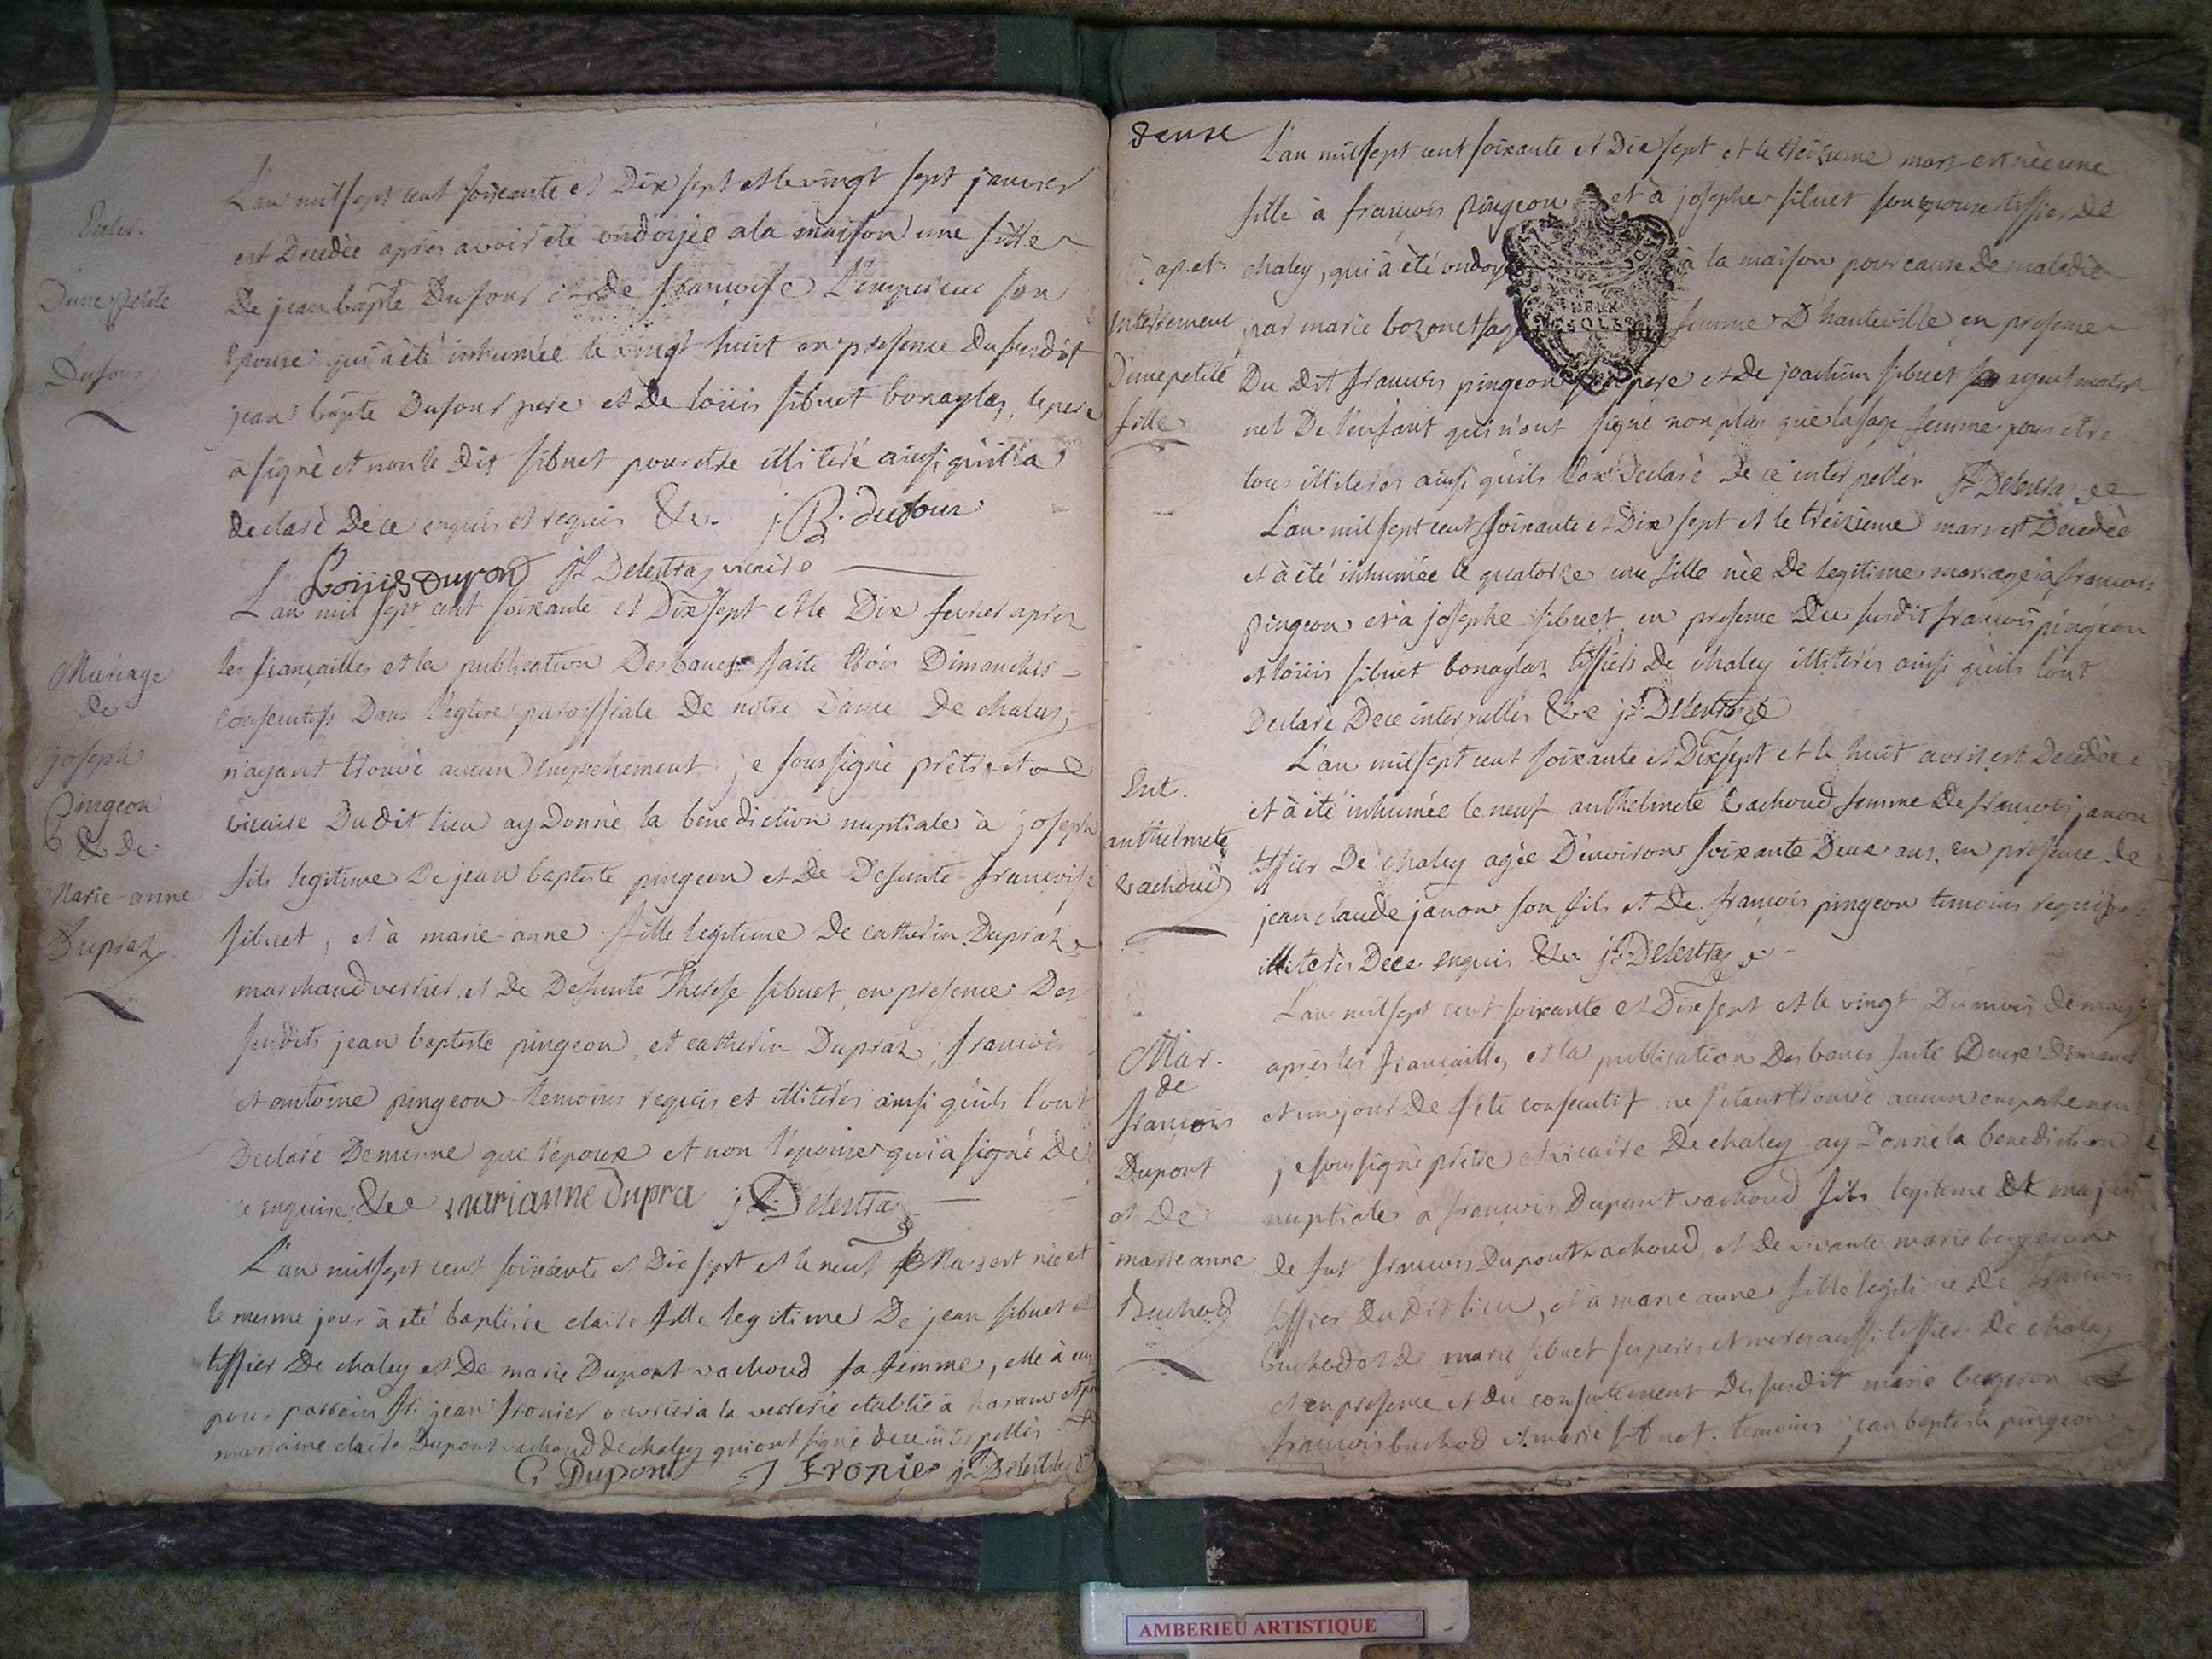 Enter.
D'une petite
Dufour
L'an mil sept cent soixante et Dix sept et le vingt sept janvier
est Decedèe après avoir été ondoyée a la maison une fille
De jean bapte Dufour et De françoise L'empereur son
Epouse qui à été inhumée le vingt huit en presence Du susdit
jean bapte Dufour pere et De loüis sibuet bonaylas, le pere
à signè et non le Dit sibuet pour etre illiteré ainsi qu'il l'a
declarè De ce enquis et requis &c. j B. dufour
Loüis Dupont jh Delestraz vicaire
Mariage
de
joseph
Pingeon
& De
Marie-anne
Dupraz
L'an mil sept cent soixante et Dix sept et le Dix fevrier après
les fiançailles et la publication Des bancs faite trois Dimanches
consecutifs Dans l'eglise paroissiale De notre Dame De chaley,
n'ayant trouvé aucun empechement je soussigné prêtre et
vicaire Du dit lieu ay Donnè la benediction nuptiale à joseph
fils legitime De jean baptiste pingeon et De Defunte françoise
sibuet, et à marie-anne fille legitime De catherin Dupraz
marchand verrier, et De Defunte Therese sibuet en presence Des
susdits jean baptiste pingeon, et catherin Dupraz, françois
et antoine pingeon temoins requis et illiterés ainsi qu'ils l'ont
Declaré De meme que l'époux et non l'épouse qui à signé De
ce enquise &c marianne dupra jh Delestraz
L'an mil sept cent soixante et Dix sept et le neuf Mars est née et
le mesme jour à été baptisée claire fille legitime De jean sibuet
tissier De chaley et De marie Dupont vachoud sa femme, elle à eu
pour parrain sr. jean fronier ouvrier a la verrerie etablie à
marraine claire Dupont vachoud de chaley qui ont signé de ce interpellés
C Dupont J Fronier jh Delestraz
deuxe
Bapt. et
Enterrement
D'une petite
fille
L'an mil sept cent soixante et Dix sept et le treizieme mars est née une
fille à françois pingeon et à josephe sibuet son epouse tissier De
chaley, qui à été ondoyée à la maison pour cause De maladie
par marie bozonet sage femme D'hauteville en presence
Du Dit françois pingeon son pere et De joachim sibuet son ayeul mater
nel De l'enfant qui n'ont signé non plus que la sage femme pour etre
tous illiterés ainsi qu'ils l'ont Declaré De ce interpellés. jh Delestraz
L'an mil sept cent soixante et Dix sept et le treizieme mars est Decedée
et à été inhumée le quatorze une fille née De legitime mariage à françois
pingeon et à josephe sibuet en presence Du susdit françois pingeon
et loüis sibuet bonaylas tissiers De chaley illiterés ainsi qu'ils l'ont
Declaré De ce interpellés &c jh Delestraz
Ent.
anthelmete
vachoud
L'an mil sept cent soixante et Dix sept et le huit avril est Decedée
et à été inhumée le neuf anthelmete vachoud femme De françois janon
tissier De chaley agée D'environ soixante Deux ans, en presence De
jean claude janon son fils et De françois pingeon temoins requis
illiterés De ce enquis &c jh Delestraz
Mar.
de
françois
Dupont
et De
marie anne
Buchod
L'an mil sept cent soixante et Dix sept et le vingt Du mois De may
après les fiançailles et la publication Des bancs faite Deux Dimanches
et un jour De fête consecutif ne s'etant trouvé aucun empechement
je soussigné prêtre et vicaire De chaley ay Donné la benediction
nuptiale à françois Dupont vachoud fils legitime et majeur
de fut françois Dupont vachoud, et De vivante marie bergeron
tissier Du Dit lieu, et à marie anne fille legitime De françois
buchod et De marie sibuet ses peres et meres aussi tissier De chaley
et en presence et Du consentement Des susdit marie bergeron
françois buchod et marie sibuet. temoins jean baptiste pingeon
AMBERIEU ARTISTIQUE